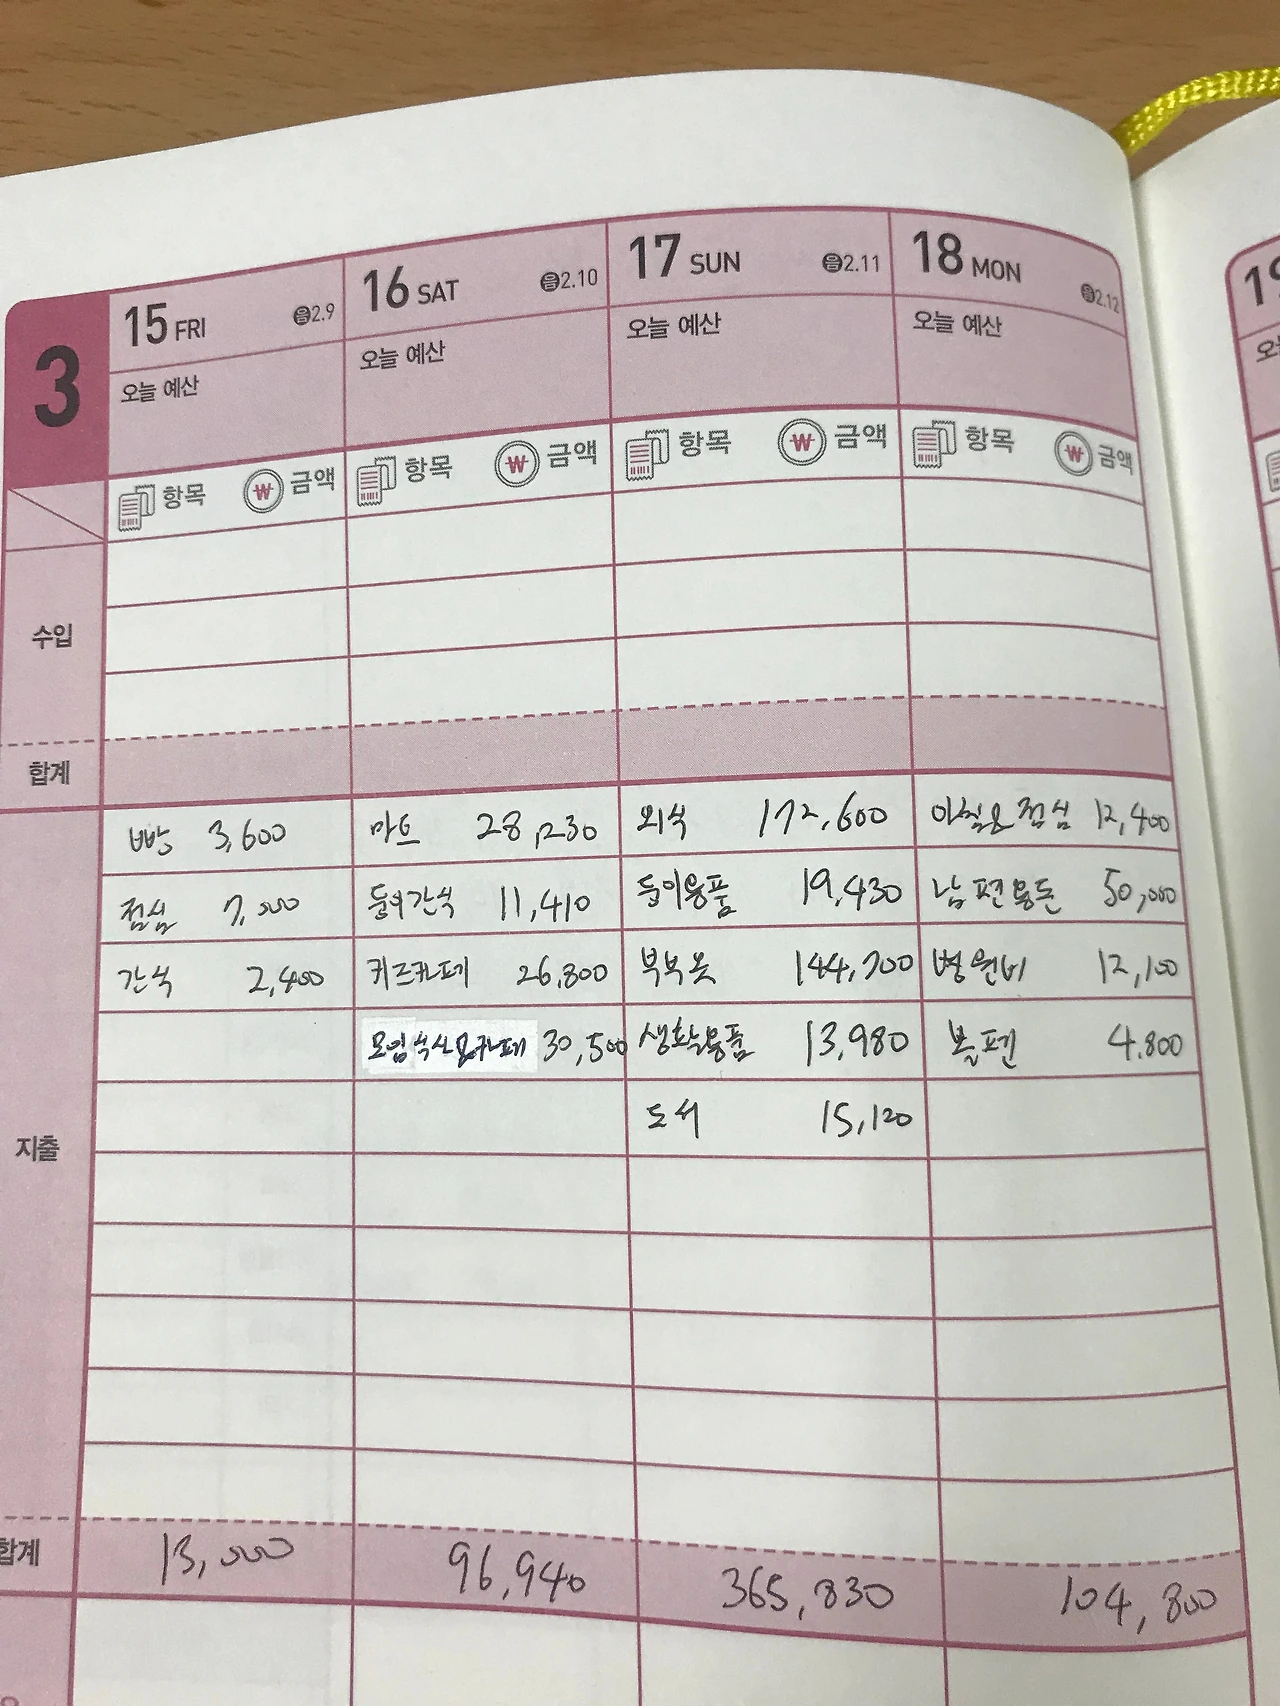 3
15 FRI 음2.9
16 SAT 음2.10
17 SUN 음2.11
18 MON 음2.12
19
오늘 예산
오늘 예산
오늘 예산
오늘 예산
항목 ₩ 금액
항목 ₩ 금액
항목 ₩ 금액
항목 ₩ 금액
수입
합계
지출
빵 3,600
마트 28,230
외식 172,600
아침&점심 12,400
점심 7,000
둥이간식 11,410
둥이용품 19,430
남편용돈 50,000
간식 2,400
키즈카페 26,800
부부옷 144,700
병원비 12,100
모임식사&카페 30,500
생활용품 13,980
볼펜 4.800
도서 15,120
합계
13,000
96,940
365,830
104,800